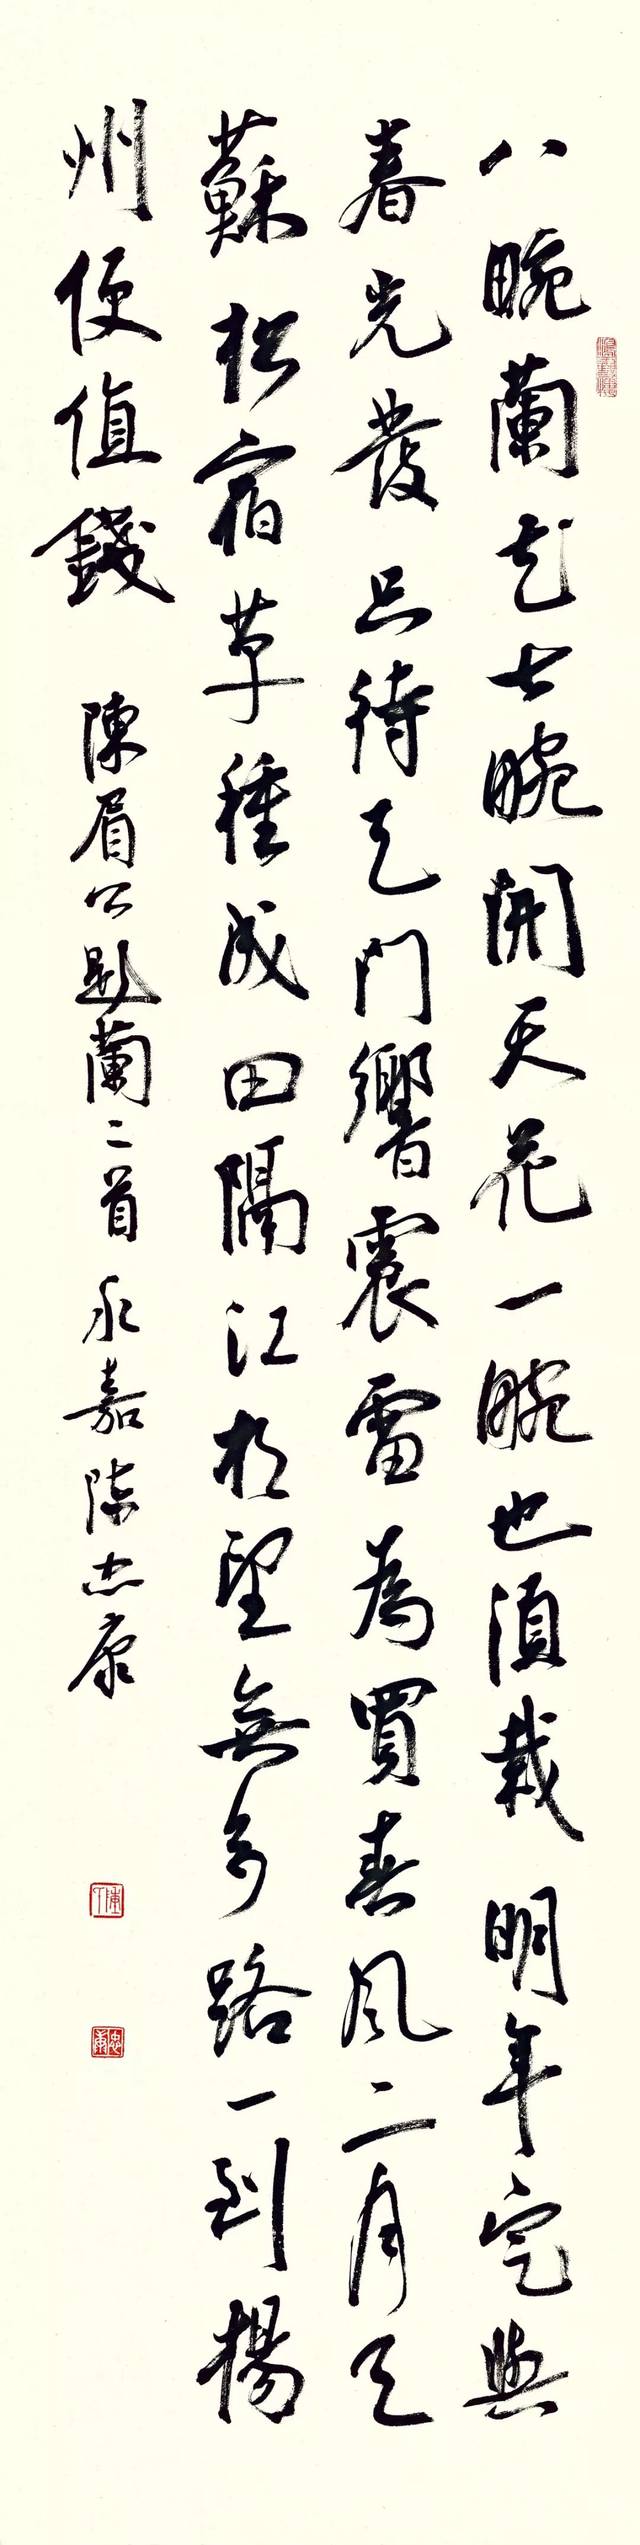 八畹蘭芝七畹開天花一畹也須栽明年定與
春光發只待天門響震雷為買春風二月天
蘇松宿草種成田隔江相望無多路一到楊
州便值錢
陳眉公題蘭二首永嘉陳忠康
忠康